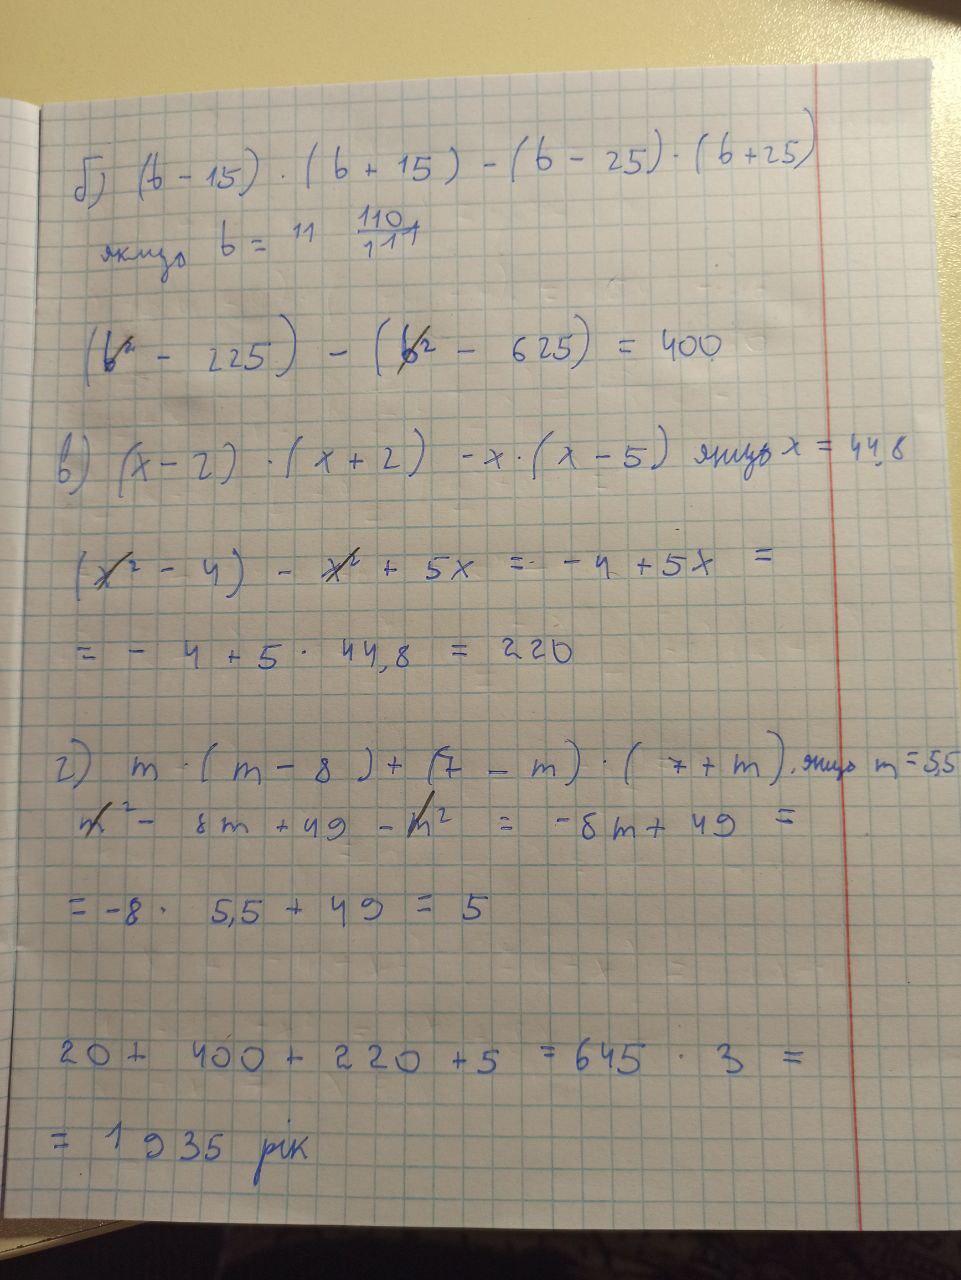 б) (b - 15) · (b + 15) - (b - 25) · (b + 25)
якщо b = 11 110/111
(b² - 225) - (b² - 625) = 400
в) (x - 2) · (x + 2) - x · (x - 5) якщо x = 44,8
(x² - 4) - x² + 5x = - 4 + 5x =
= - 4 + 5 · 44,8 = 220
г) m · (m - 8) + (7 - m) · (7 + m), якщо m = 5,5
m² - 8m + 49 - m² = -8m + 49 =
= -8 · 5,5 + 49 = 5
20 + 400 + 220 + 5 = 645 · 3 =
= 1935 рік